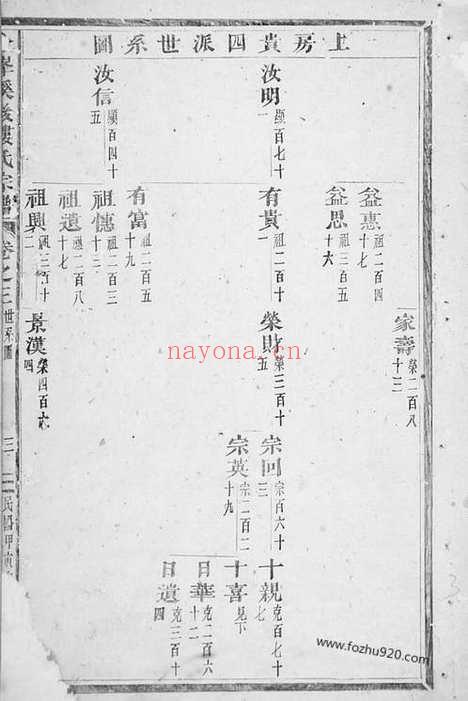 上房貴四派世系圖
汝明 顯百七十一
汝信 顯百四十五
益惠 祖二百四十七
益思 祖三百五十六
有貴 祖二百十一
有富 祖二百五十九
祖憓 祖二百三十二
祖遺 祖二百八十七
祖興 祖三百十二
家壽 榮二百八十三
榮財 榮三百十五
景漢 榮四百六十四
宗回 宗百六十三
宗英 宗二百二十九
十親 克百七十七
十喜 見下
日華 克二百六十二
日遺 克三百十四
氏宗譜
卷之三
世系圖
三
nayona.cn
www.fozhu920.com